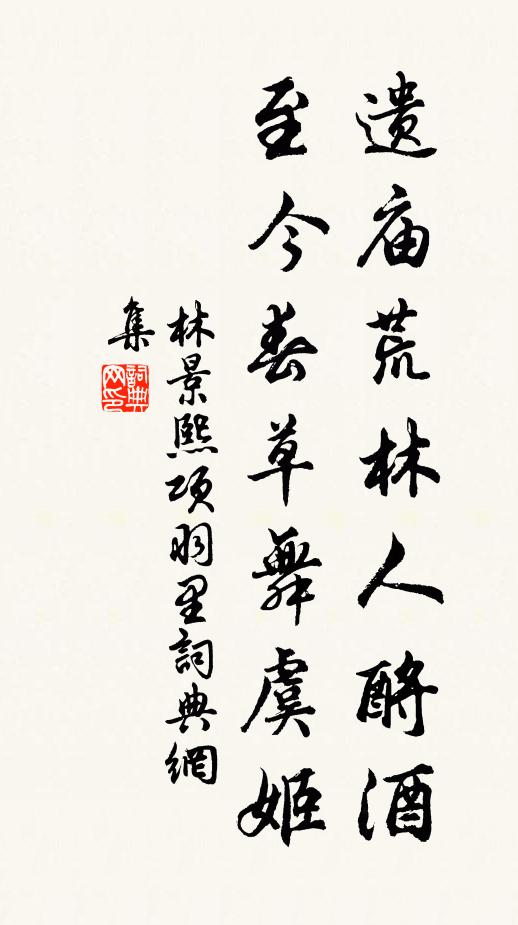 遗庙荒林人酹酒
至今春草舞虞姬
林景熙项羽里詞典網
集
詞典
网印